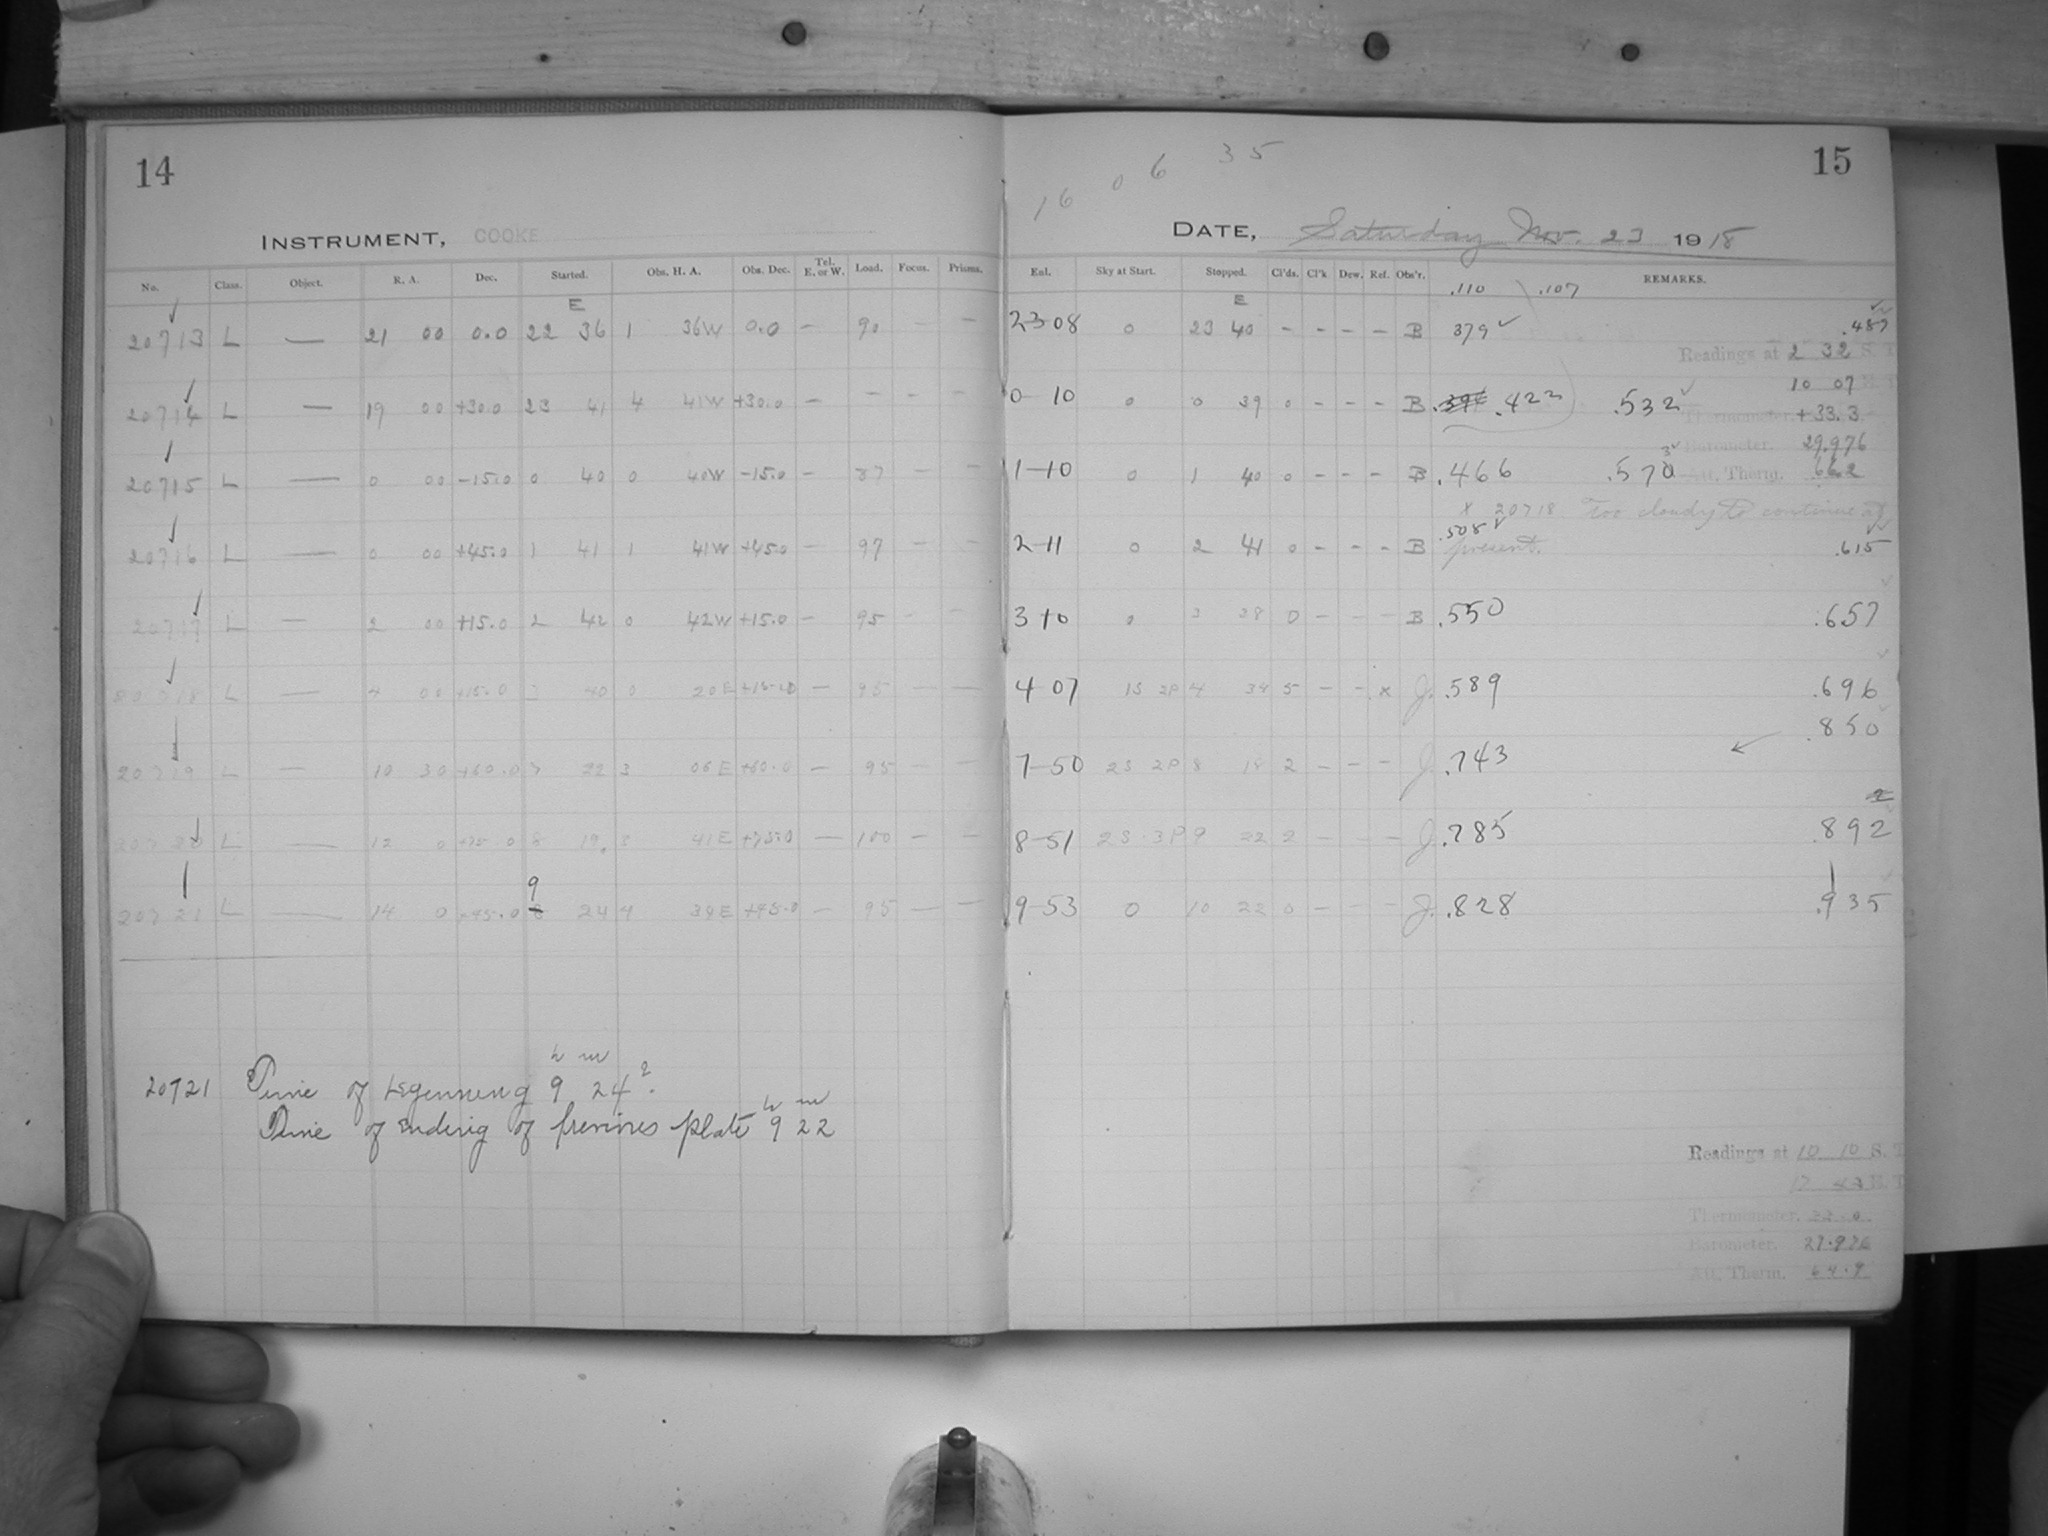 14
INSTRUMENT, COOKE
No. Class. Object. R. A. Dec. Started. Obs. H. A. Obs. Dec. Tel. E. or W. Load. Focus. Prisms.
E
20713 L — 21 00 0.0 22 36 1 36W 0.0 — 90 — —
20714 L — 19 00 +30.0 23 41 4 41W +30.0 — — — —
20715 L — 0 00 -15.0 0 40 0 40W -15.0 — 87 — —
20716 L — 0 00 +45.0 1 41 1 41W +45.0 — 97 — —
20717 L — 2 00 +15.0 2 42 0 42W +15.0 — 95 — —
20718 L — 4 00 +15.0 3 40 0 20E +15.0 — 95 — —
20719 L — 10 30 +60.0 7 22 3 06E +60.0 — 95 — —
20720 L — 12 0 +75.0 8 19 3 41E +75.0 — 100 — —
9
20721 L — 14 0 +45.0 8 24 4 39E +45.0 — 95 — —
h m
20721 Time of beginning 9 24?
h m
Time of Ending of previous plate 9 22
16 0 6 35
15
DATE, Saturday Nov. 23 1918
Eq1. Sky at Start. Stopped. Cl'ds. Cl'k Dew. Ref. Obs'r. REMARKS.
.110 \ .107
E
23-08 0 23 40 - - - - B 379 ✓ .487
Readings at 2 32 S. T
10 07
0-10 0 0 39 0 - - - B .422 .532 ✓
Thermometer. +33.3
Barometer. 29.976
3✓
1-10 0 1 40 0 - - - B .466 .570
Att. Therm. 66.2
x 20718 Too cloudy to continue at
present.
2-11 0 2 41 0 - - - B .508 ✓ .615
3 10 0 3 38 0 - - - B .550 .657
4-07 1S 2P 4 34 5 - - x J. .589 .696
.850
7-50 2S 2P 8 18 2 - - - J. .743
8-51 2S.3P 9 22 2 - - - J. .785 .892
9-53 0 10 22 0 - - - J. .828 .935
Readings at 10 10 S. T
Thermometer.
Barometer. 29.976
Att. Therm. 64.9